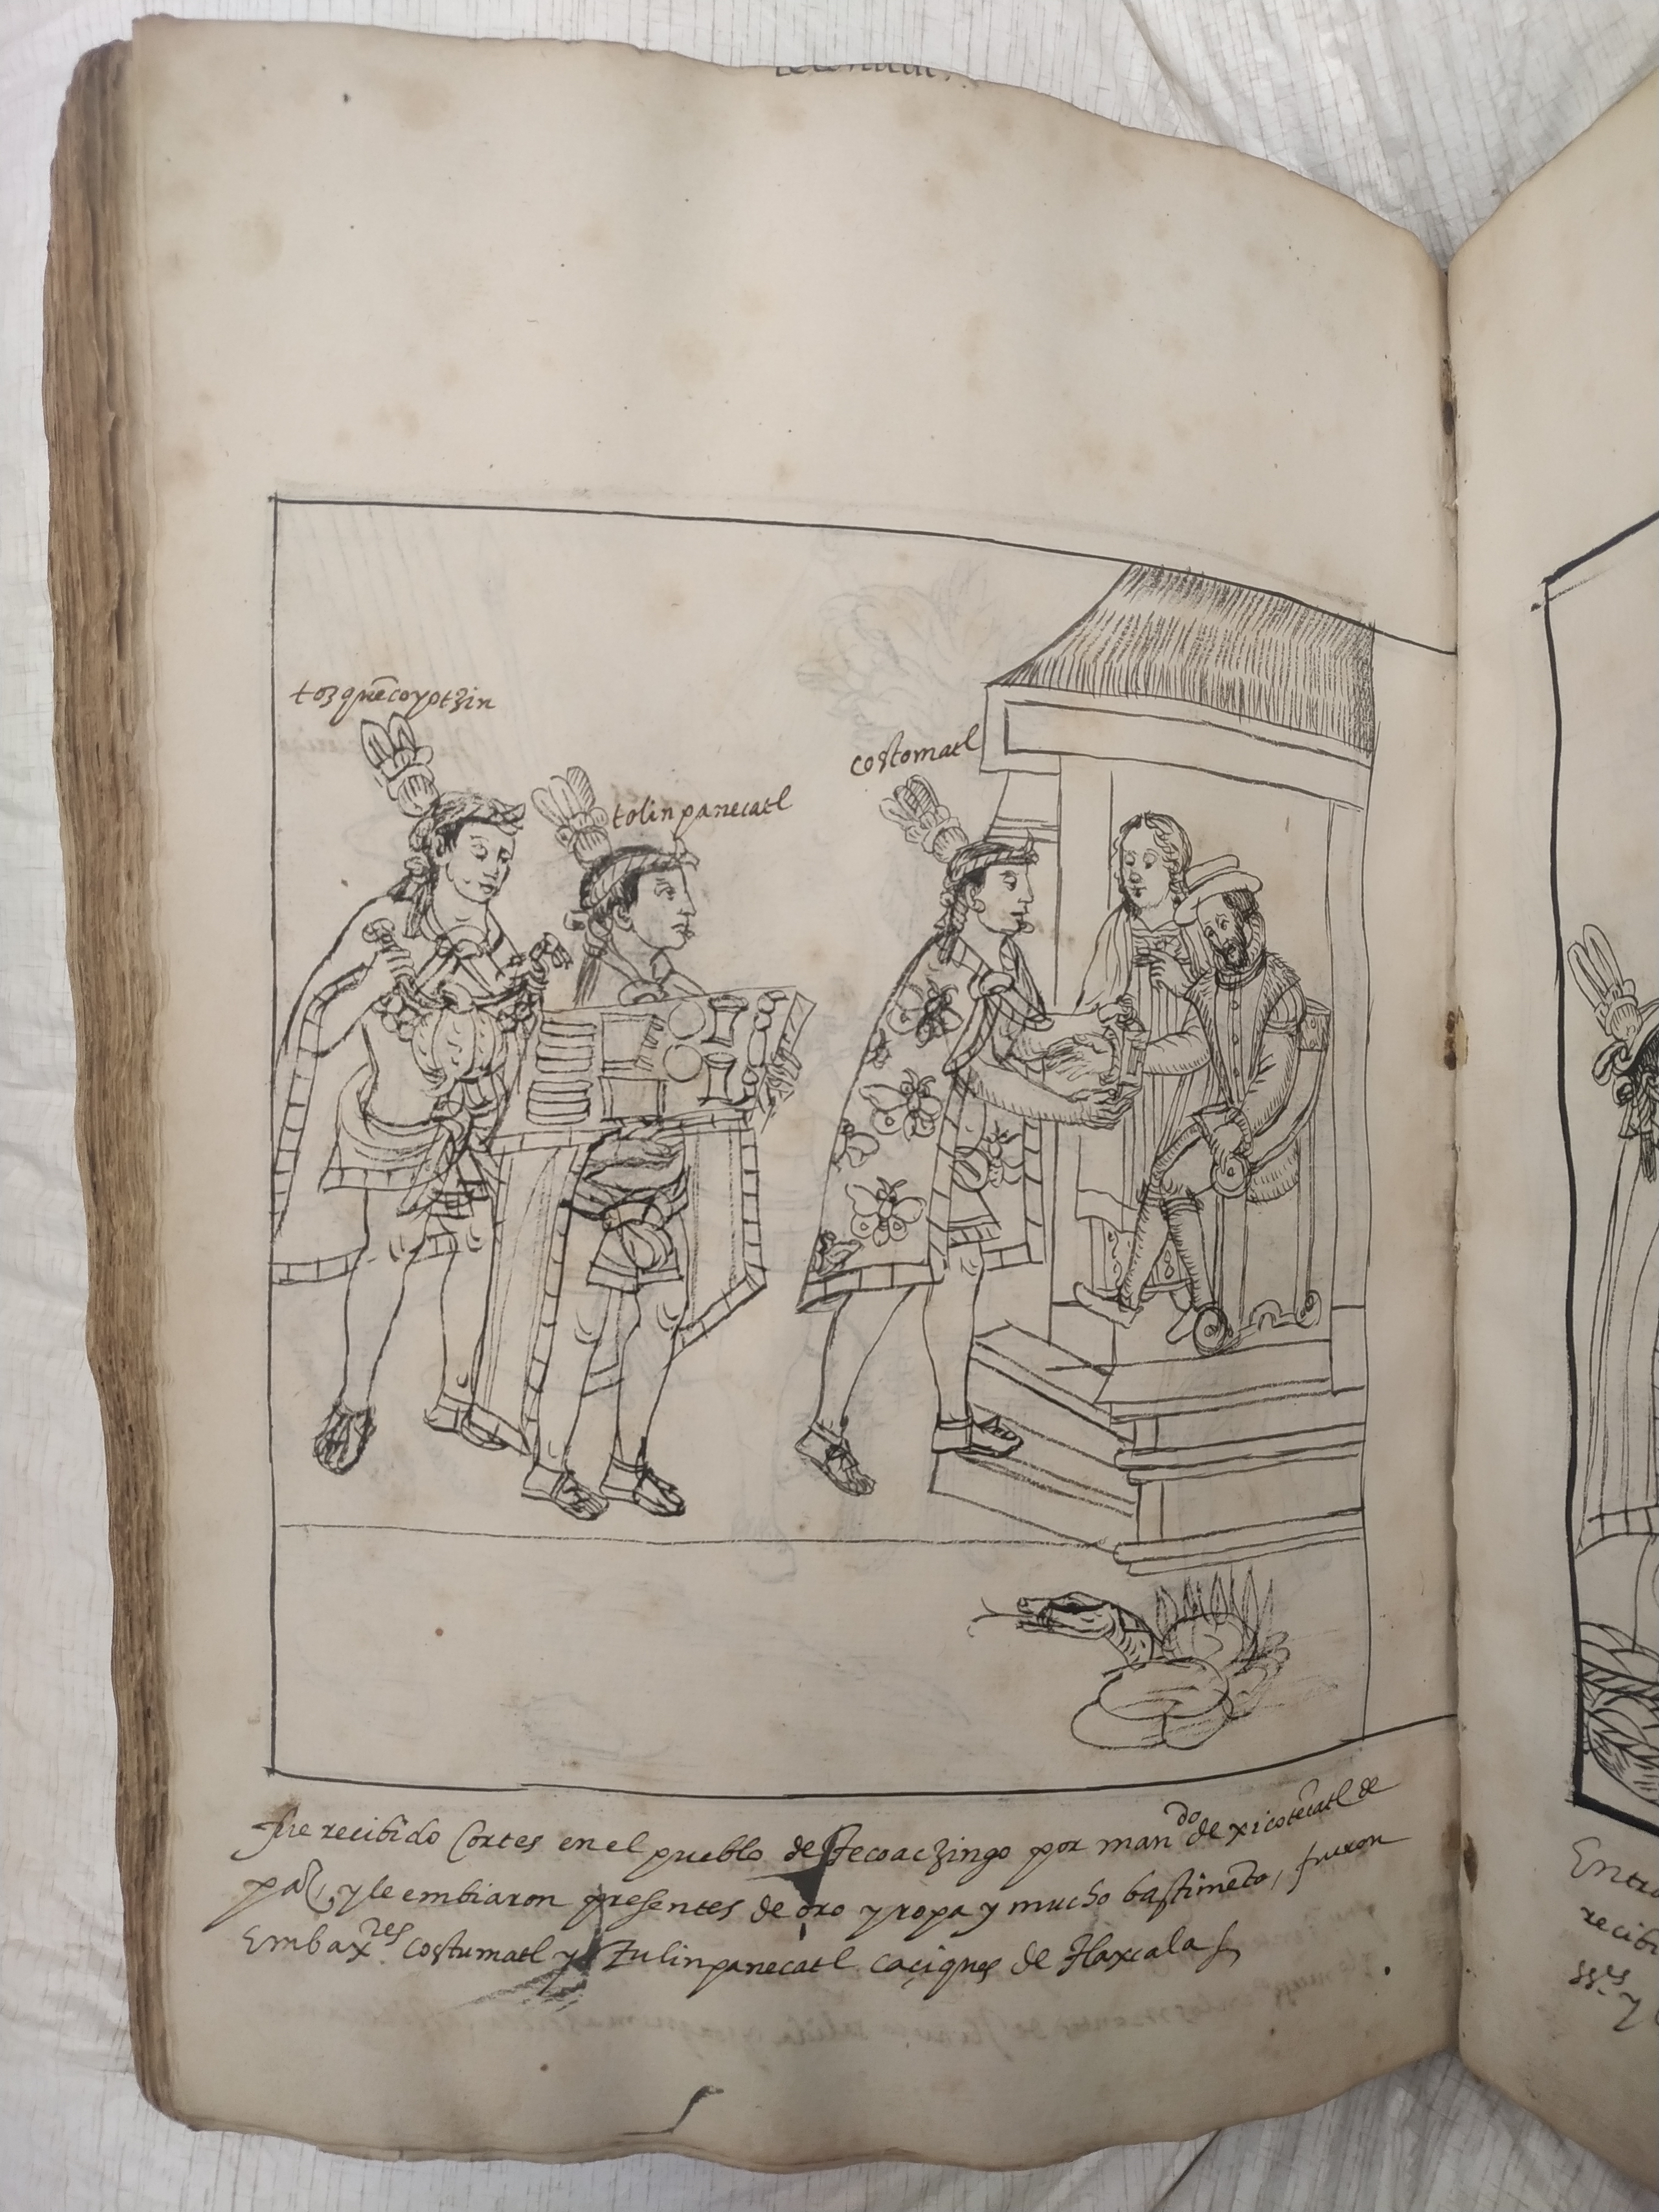 tozquēcoyotzin
tolinpanecatl
costomatl
fue recibido Cortes en el pueblo de Tecoaczingo por man.do de xicotēcatl de
paz, y le embiaron presentes de oro y ropa y mucho bastimēto, fueron
Embax.res costumatl y Tulinpanecatl caçiques de tlaxcala
Entra
recibi
ss.es y